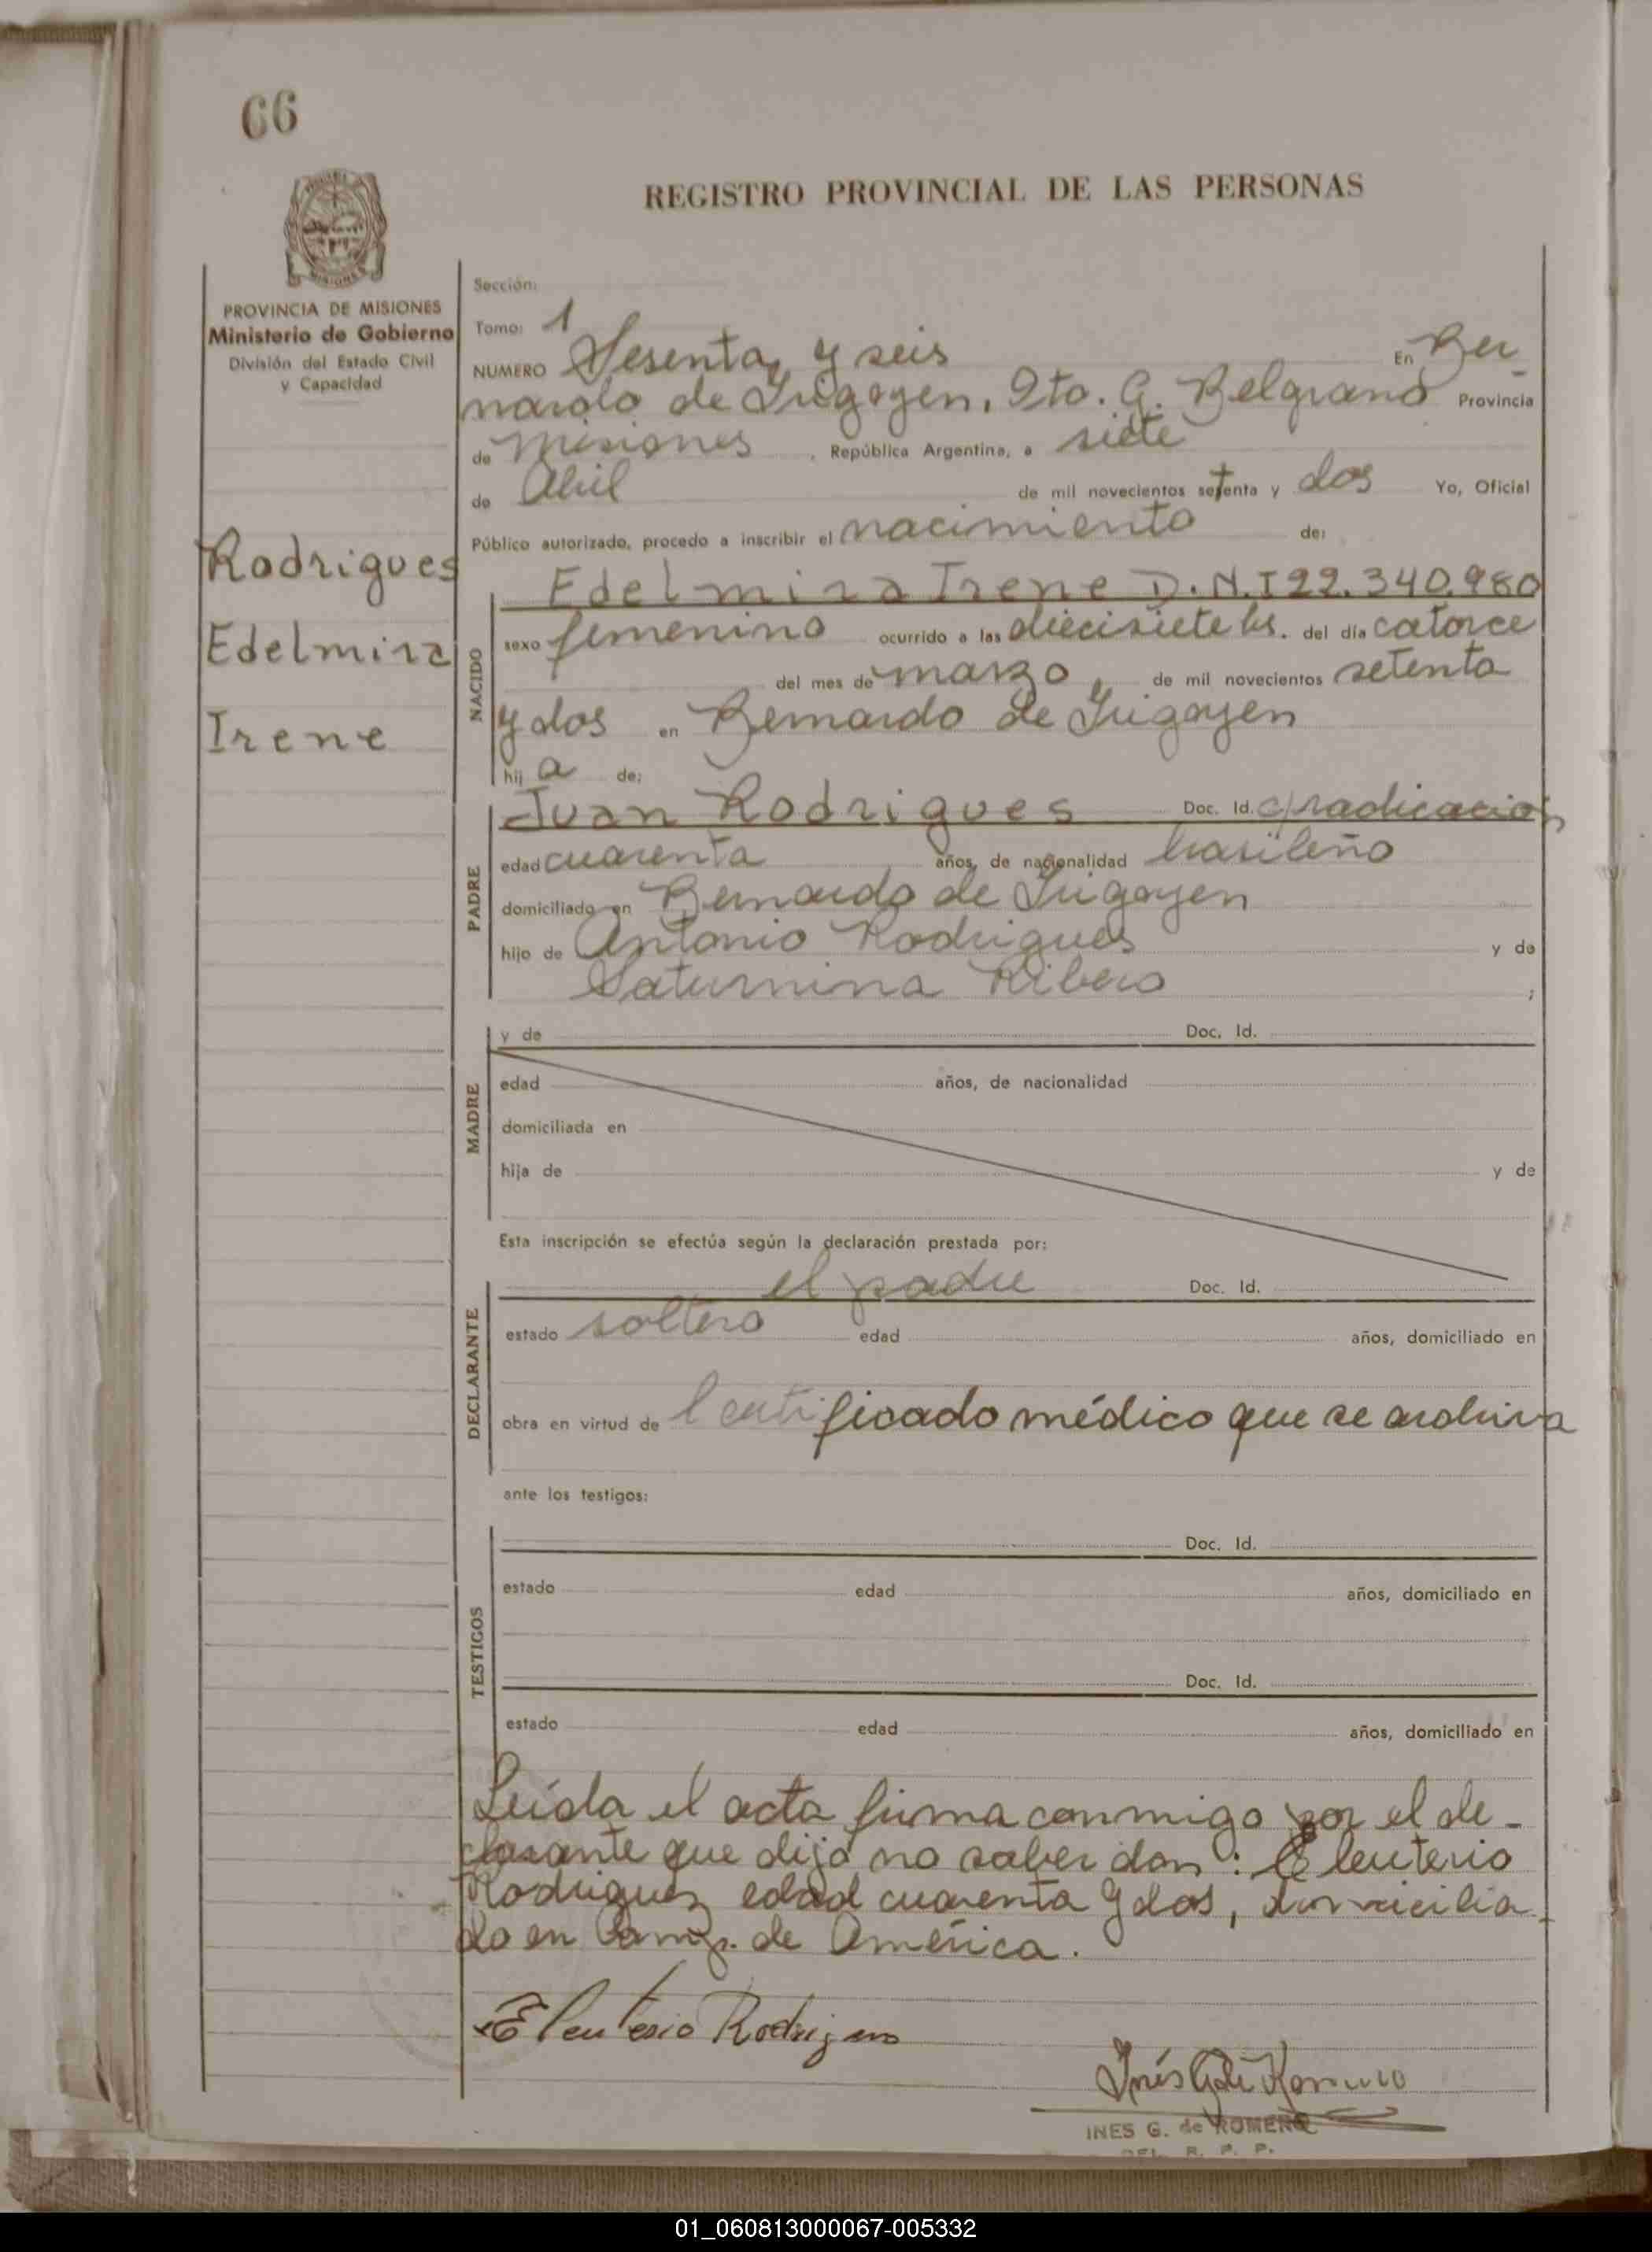 66
REGISTRO PROVINCIAL DE LAS PERSONAS
PROVINCIA DE MISIONES
Ministerio de Gobierno
División del Estado Civil
y Capacidad
Rodrigues
Edelmira
Irene
Sección:
Tomo: 1
NUMERO Sesenta y seis En Ber-
nardo de Irigoyen, Dto. G. Belgrano Provincia
de Misiones, República Argentina, a siete
de Abril de mil novecientos setenta y dos Yo, Oficial
Público autorizado, procedo a inscribir el nacimiento de:
NACIDO
Edelmira Irene D.N.I 22.340.980
sexo femenino ocurrido a las diecisiete hs. del día catorce
del mes de marzo, de mil novecientos setenta
y dos en Bernardo de Irigoyen
hij a de:
PADRE
Juan Rodrigues Doc. Id. c/radicación
edad cuarenta años, de nacionalidad brasileño
domiciliado en Bernardo de Irigoyen
hijo de Antonio Rodrigues y de
Saturnina Ribero ;
MADRE
y de Doc. Id.
edad años, de nacionalidad
domiciliada en
hija de y de
Esta inscripción se efectúa según la declaración prestada por:
DECLARANTE
el padre Doc. Id.
estado soltero edad años, domiciliado en
obra en virtud de Certificado médico que se archiva
ante los testigos:
TESTIGOS
Doc. Id.
estado edad años, domiciliado en
Doc. Id.
estado edad años, domiciliado en
Leída el acta firma conmigo por el de-
clarante que dijo no saber don: Eleuterio
Rodriguez edad cuarenta y dos, domicilia-
do en Comp. de América.
Eleuterio Rodriguez
Inés G. de Romero
INES G. de ROMERO
DEL. R. P. P.
01_060813000067-005332